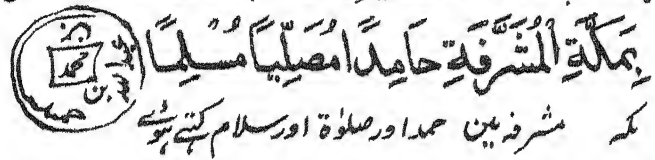 بِمَكَّةِ الْمُشَرَّفَةِ حَامِدًا مُصَلِّيًا مُسْلِمًا
مکہ مشرفہ میں حمد اور صلوٰۃ اور سلام کہتے ہوئے
محمد
بن
عبد اللہ بن